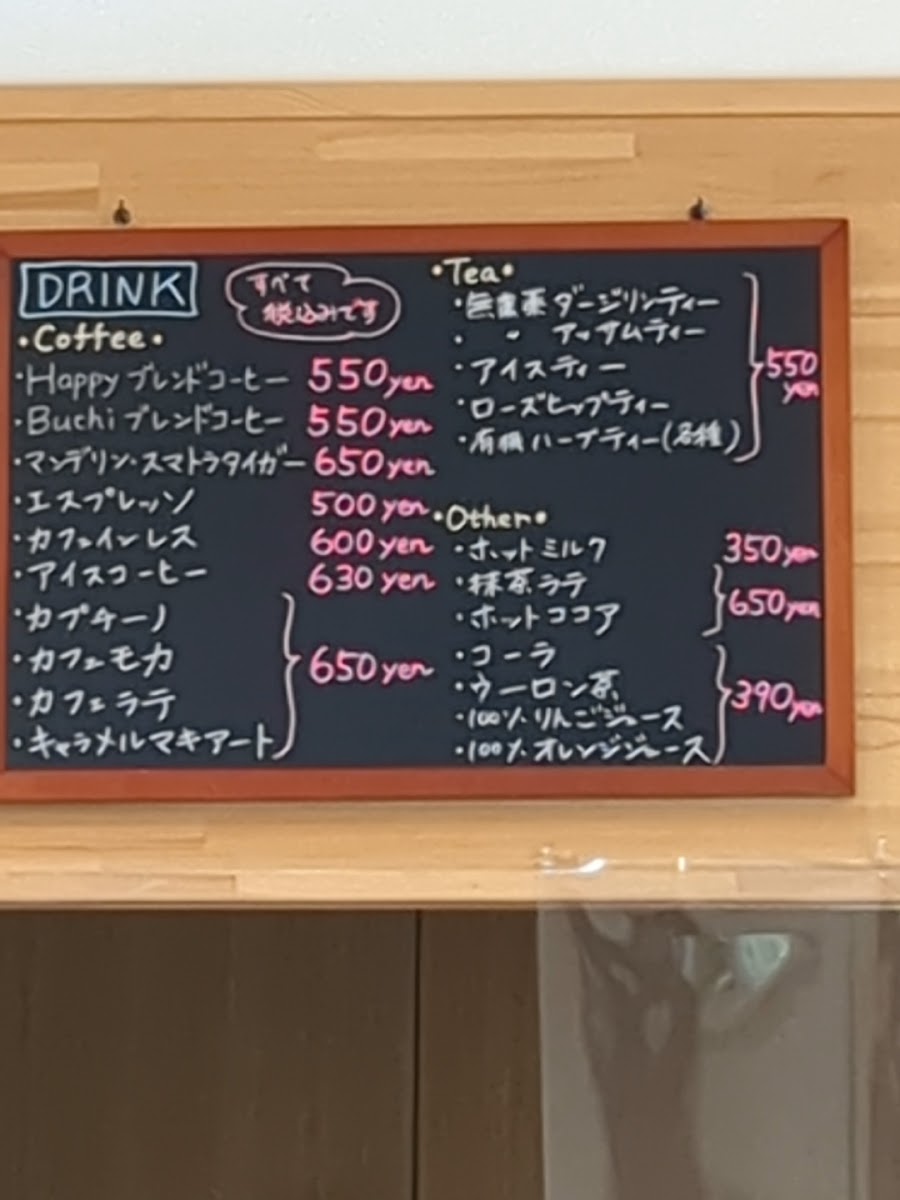 DRINK
すべて
税込みです
・Coffee・
・Happy ブレンドコーヒー 550yen
・Buchi ブレンドコーヒー 550yen
・マンデリン・スマトラタイガー 650yen
・エスプレッソ 500yen
・カフェインレス 600yen
・アイスコーヒー 630yen
・カプチーノ
・カフェモカ
・カフェラテ
・キャラメルマキアート
650yen
・Tea・
・無農薬 ダージリンティー
・ 〃 アッサムティー
・アイスティー
・ローズヒップティー
・有機ハーブティー(各種)
550
yen
・Other・
・ホットミルク 350yen
・抹茶ラテ
・ホットココア
650yen
・コーラ
・ウーロン茶
・100%りんごジュース
・100%オレンジジュース
390yen